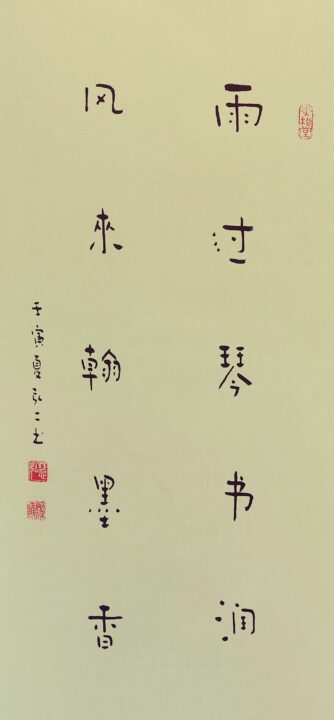 雨过琴书润
风來翰墨香
壬寅夏弘一书